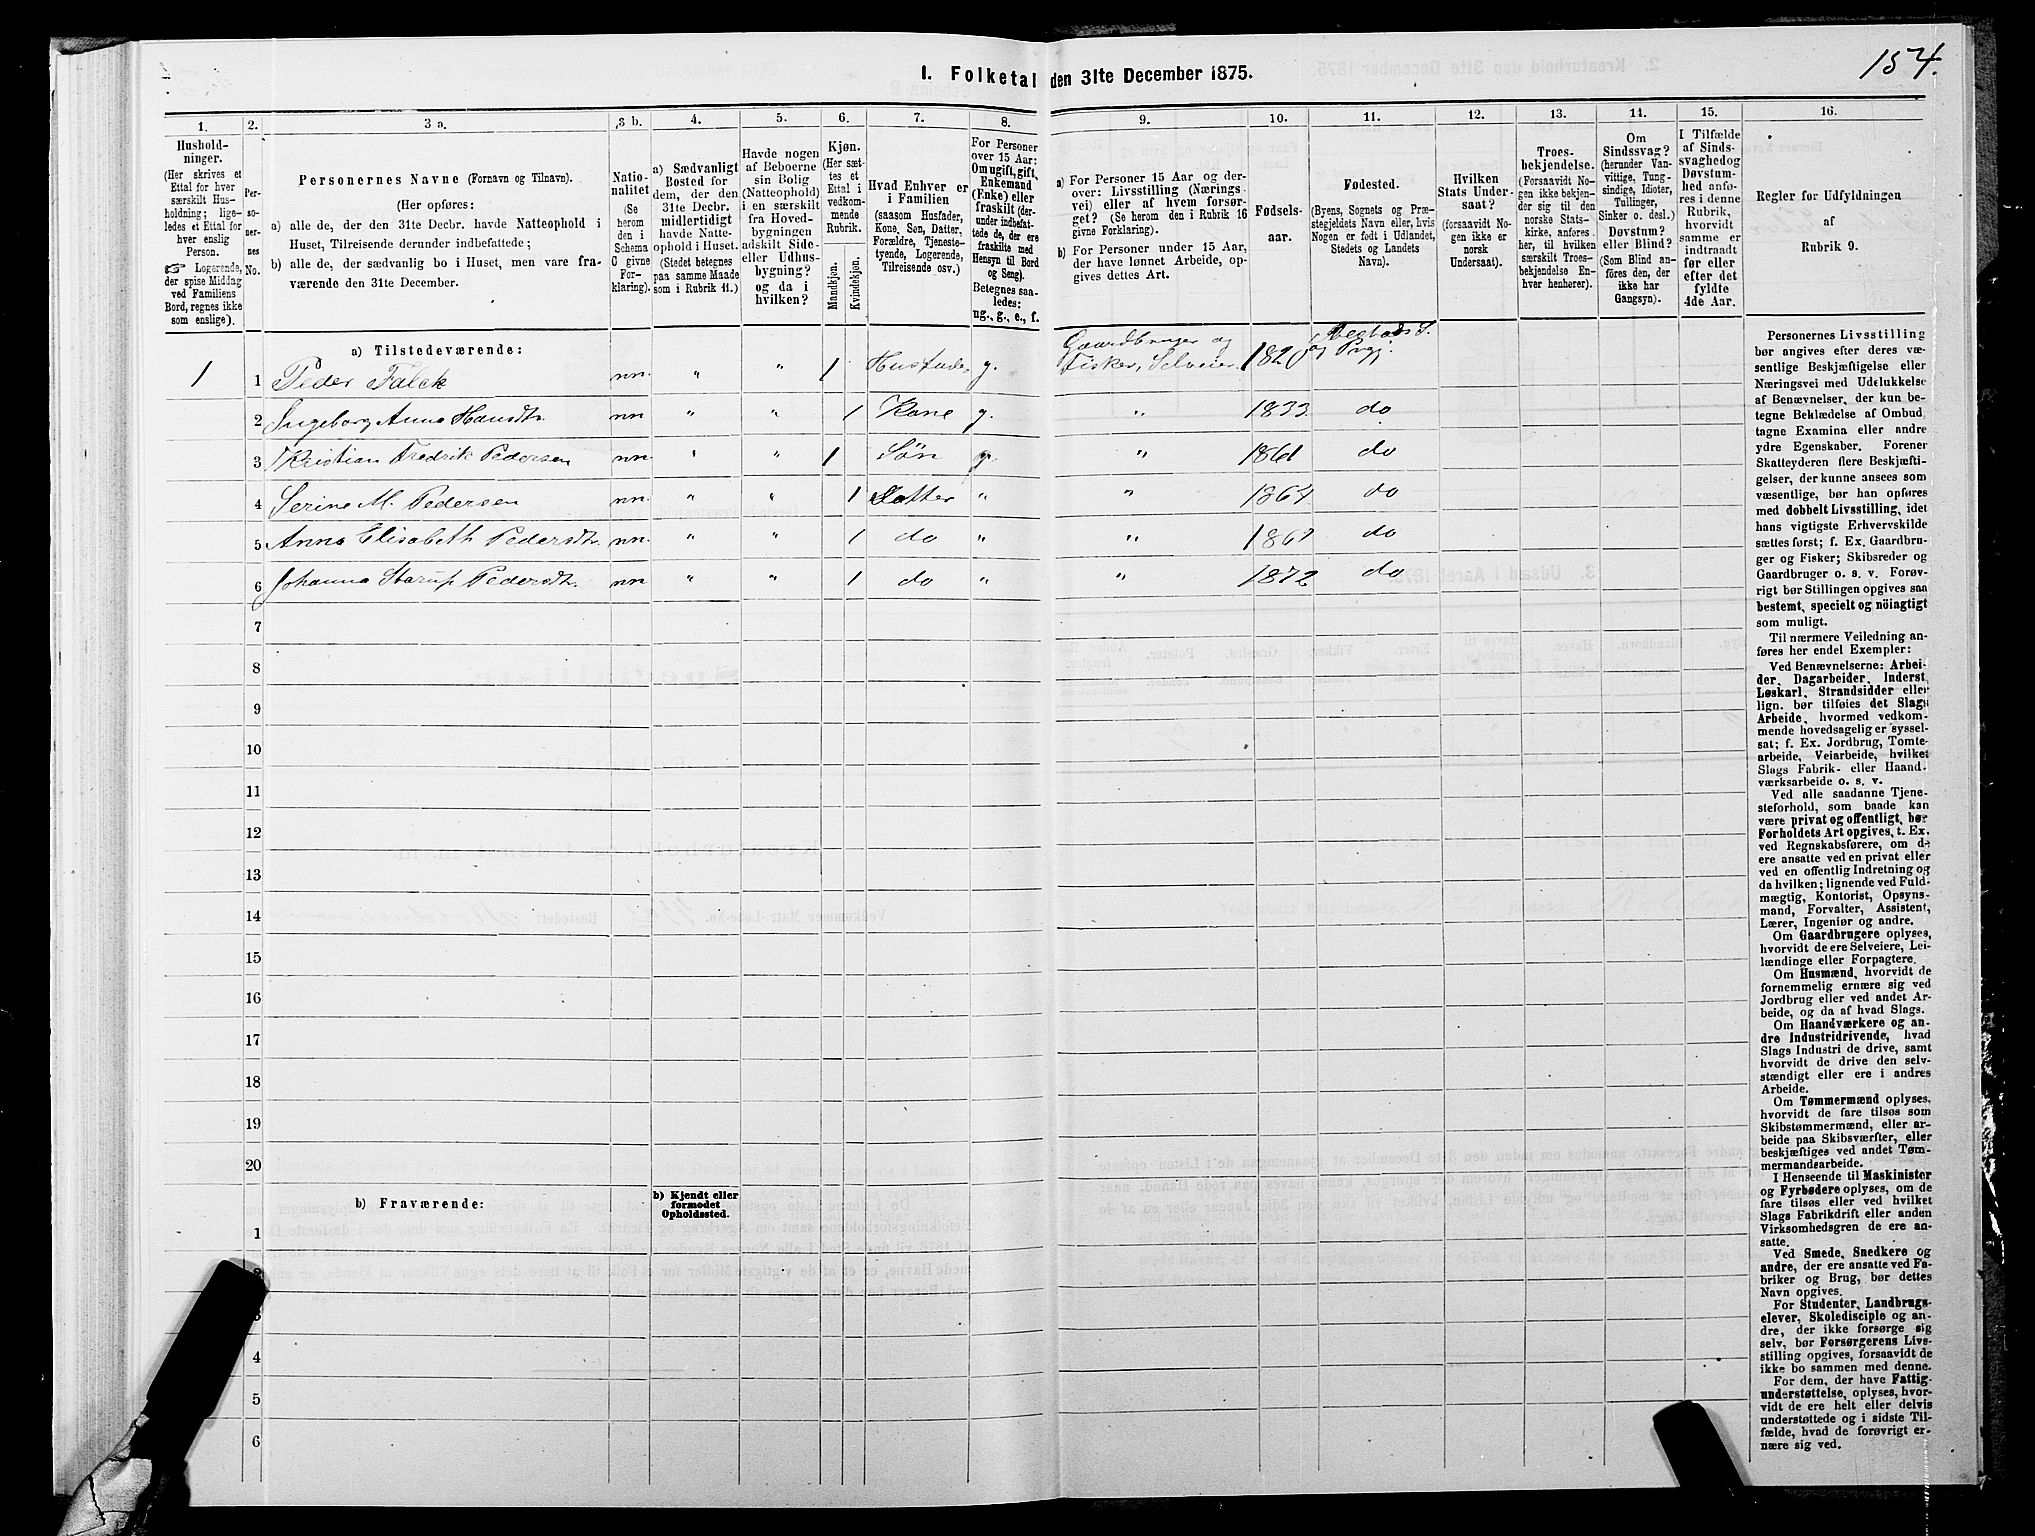 154.
I. Folketal den 31te December 1875.
1.
Hushold-
ninger.
(Her skrives et
Ettal for hver
særskilt Hus-
holdning; lige-
ledes et Ettal for
hver enslig
Person.
Logerende,
der spise Middag
ved Familiens
Bord, regnes ikke
som enslige).
2.
Per-
so-
ner-
nes
No.
3 a.
Personernes Navne (Fornavn og Tilnavn).
(Her opføres:
a) alle de, der den 31te Decbr. havde Natteophold i
Huset, Tilreisende derunder indbefattede;
b) alle de, der sædvanlig bo i Huset, men vare fra-
værende den 31te December.
3 b.
Natio-
nalitet
(Se
herom
den i
Schema
C givne
For-
klaring).
4.
a) Sædvanligt
Bosted for
dem, der den
31te Decbr.
midlertidigt
havde Natte-
ophold i Huset.
(Stedet betegnes
paa samme Maade
som i Rubrik 11.)
5.
Havde nogen
af Beboerne
sin Bolig
(Natteophold)
i en særskilt
fra Hoved-
bygningen
adskilt Side-
eller Udhus-
bygning?
og da i
hvilken?
6.
Kjøn.
(Her sæt-
tes et
Ettal i
vedkom-
mende
Rubrik.
Mandkjøn.
Kvindekjøn.
7.
Hvad Enhver er
i Familien
(saasom Husfader,
Kone, Søn, Datter,
Forældre, Tjeneste-
tyende, Logerende,
Tilreisende osv.)
8.
For Personer
over 15 Aar:
Om ugift, gift,
Enkemand
(Enke) eller
fraskilt (der-
under indbefat-
tede de, der ere
fraskilte med
Hensyn til Bord
og Seng).
Betegnes saa-
ledes:
ug., g., e., f.
9.
a) For Personer 15 Aar og der-
over: Livsstilling (Nærings-
vei) eller af hvem forsør-
get? (Se herom den i Rubrik 16
givne Forklaring).
b) For Personer under 15 Aar,
der have lønnet Arbeide, op-
gives dettes Art.
10.
Fødsels-
aar.
11.
Fødested.
(Byens, Sognets og Præ-
stegjeldets Navn eller, hvis
Nogen er født i Udlandet,
Stedets og Landets
Navn).
12.
Hvilken
Stats Under-
saat?
(forsaavidt No-
gen ikke er
norsk
Undersaat).
13.
Troes-
bekjendelse.
(Forsaavidt No-
gen ikke bekjen-
der sig til den
norske Stats-
kirke, anføres
her, til hvilken
særskilt Troes-
bekjendelse En-
hver henhører).
14.
Om
Sindssvag?
(herunder Van-
vittige, Tung-
sindige, Idioter,
Tullinger,
Sinker o. desl.)
Døvstum?
eller Blind?
(Som Blind an-
føres den, der
ikke har
Gangsyn).
15.
I Tilfælde
af Sinds-
svaghed og
Døvstum-
hed anfø-
res i denne
Rubrik,
hvorvidt
samme er
indtraadt
før eller
efter det
fyldte
4de Aar.
16.
Regler for Udfyldningen
af
Rubrik 9.
a) Tilstedeværende:
1 1 Peder Falck nn. " " 1 Husfader g. Gaardbruger og Fisker, Selveier. 1820 S. og Prgj.
2 Ingeborg Anna Hansdtr. nn " " 1 Kone g. " 1833. do
3 Kristian Fredrik Pedersen nn. " " 1 Søn g. " 1861 do
4 Serine M. Pedersen nn. " " 1 Datter " " 1864 do
5 Anna Elisabeth Pedersdtr. nn. " " 1 do " " 1867 do
6 Johanna Starup Pedersdtr. nn " " 1 do " " 1872 do
7
8
9
10
11
12
13
14
15
16
17
18
19
20
b) Fraværende:
b) Kjendt eller
formodet
Opholdssted.
1
3
4
5
6
Personernes Livsstilling
bør angives efter deres væ-
sentlige Beskjæftigelse eller
Næringsvei med Udelukkelse
af Benævnelser, der kun be-
tegne Beklædelse af Ombud,
tagne Examina eller andre
ydre Egenskaber. Forener
Skatteyderen flere Beskjæfti-
gelser, der kunne ansees som
væsentlige, bør han opføres
med dobbelt Livsstilling, idet
hans vigtigste Erhvervskilde
sættes først; f. Ex. Gaardbru-
ger og Fisker; Skibsreder og
Gaardbruger o. s. v. Forøv-
rigt bør Stillingen opgives saa
bestemt, specielt og nöiagtigt
som muligt.
Til nærmere Veiledning an-
føres her endel Exempler:
Ved Benævnelserne: Arbei-
der, Dagarbeider, Inderst,
Løskarl, Strandsidder eller
lign. bør tilføies det Slags
Arbeide, hvormed vedkom-
mende hovedsagelig er syssel-
sat; f. Ex. Jordbrug, Tomte-
arbeide, Veiarbeide, hvilket
Slags Fabrik- eller Haand-
værksarbeide o. s. v.
Ved alle saadanne Tjene-
steforhold, som baade kan
være privat og offentligt, bør
Forholdets Art opgives, t. Ex.
ved Regnskabsførere, om de
ere ansatte ved en privat eller
ved en offentlig Indretning og
da hvilken; lignende ved Fuld-
mægtig, Kontorist, Opsyns-
mand, Forvalter, Assistent,
Lærer, Ingeniør og andre.
Om Gaardbrugere oplyses,
hvorvidt de ere Selveiere, Lei-
lændinge eller Forpagtere.
Om Husmænd, hvorvidt de
fornemmelig ernære sig ved
Jordbrug eller ved andet Ar-
beide, og da af hvad Slags.
Om Haandværkere og an-
dre Industridrivende, hvad
Slags Industri de drive, samt
hvorvidt de drive den selv-
stændigt eller ere i andres
Arbeide.
Om Tømmermænd oplyses,
hvorvidt de fare tilsøs som
Skibstømmermænd, eller ar-
beide paa Skibsværfter, eller
beskjæftiges ved andet Tøm-
mermandsarbeide.
I Henseende til Maskinister
og Fyrbødere oplyses, om de
fare tilsøs eller ved hvilket
Slags Fabrikdrift eller anden
Virksomhedsgren de ere an-
satte.
Ved Smede, Snedkere og
andre, der ere ansatte ved Fa-
briker og Brug, bør dettes
Navn opgives.
For Studenter, Landbrugs-
elever, Skoledisciple og an-
dre, der ikke forsørge sig
selv, bør Forsørgerens Livs-
stilling opgives, forsaavidt de
ikke bo sammen med denne.
For dem, der have Fattig-
understøttelse, oplyses, hvor-
vidt de ere helt eller delvis
understøttede og i sidste Til-
fælde, hvad de forøvrigt er-
nære sig ved.